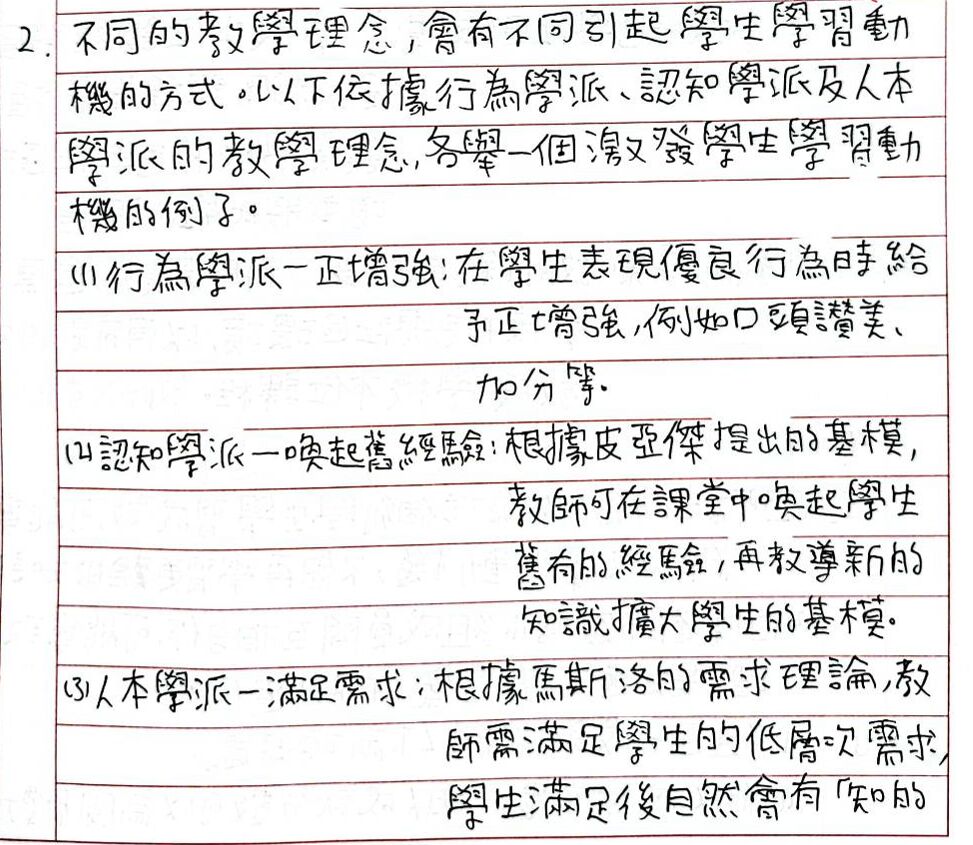 2. 不同的教學理念,會有不同引起學生學習動
機的方式。以下依據行為學派、認知學派及人本
學派的教學理念,各舉一個激發學生學習動
機的例子。
(1)行為學派—正增強:在學生表現優良行為時給
予正增強,例如口頭讚美、
加分等。
(2)認知學派—喚起舊經驗:根據皮亞傑提出的基模,
教師可在課堂中喚起學生
舊有的經驗,再教導新的
知識擴大學生的基模。
(3)人本學派—滿足需求:根據馬斯洛的需求理論,教
師需滿足學生的低層次需求,
學生滿足後自然會有「知的